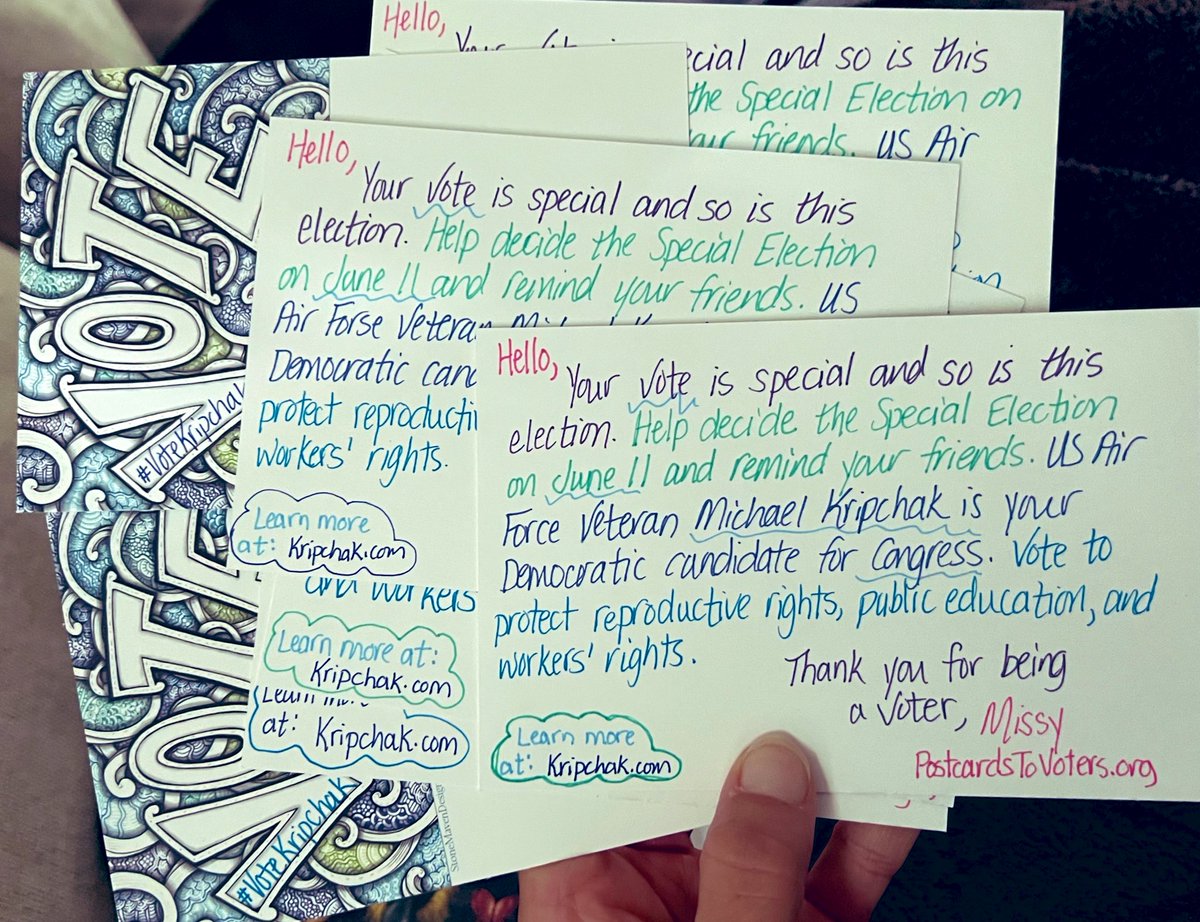 Hello,
Your
ecial and so is this
the Special Election on
your friends. US Air
Hello,
Your Vote is special and so is this
election. Help decide the Special Election
on June 11 and remind your friends. US
Air Forse Veteran
Democratic
protect
workers' rights.
Learn more
at: Kripchak.com
and workers
Learn more at:
Kripchak.com
Learn
at: Kripchak.com
Hello,
Your Vote is special and so is this
election. Help decide the Special Election
on June 11 and remind your friends. US Air
Force Veteran Michael Kripchak is your
Democratic candidate for Congress. Vote to
protect reproductive rights, public education, and
workers' rights.
Thank you for being
a Voter, Missy
PostcardsToVoters.org
Learn more
at: Kripchak.com
VOTE
#VoteKripchak
VOTE
#VoteKripchak
StoneMavenDesign